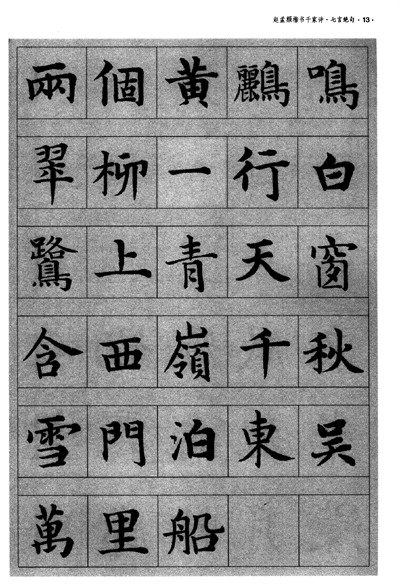 赵孟頫楷书千家诗·七言绝句·13·
兩個黃鸝鳴
翠柳一行白
鷺上青天窗
含西嶺千秋
雪門泊東吳
萬里船